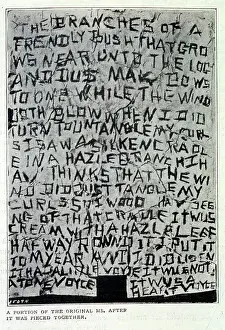 THE BRANCHES OF A
FRENDLY BUSH THAT GRO
WS NEAR UNTO THE LOG
AND I US MAK BOWS
TO ONE WHILE THE WIND
DOTH BLOW WHEN I DID
TURN TO UNTANGLE MY CURL
S I SAW A SILKEN CRADL
E IN A HAZLE BRANCH I H
AV THINKS THAT THE WI
ND DID JUST TANGLE MY
CURLS SO I WOOD HAV SEE
ING OF THAT CRADLE IT WUS
CREAM WITH A HAZLE LEAF
HALF WAY ROUND IT I PUT IT
TO MY EAR AND I DID LISTEN
IT HAD A LITTLE VOYCE
IT WUS NOT
VOYCE
IT WUS A
HEART VOYCE
A PORTION OF THE ORIGINAL MS. AFTER
IT WAS PIECED TOGETHER.